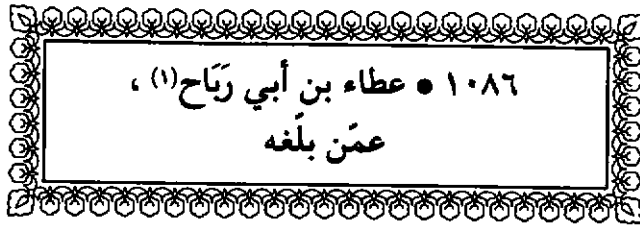 ١٠٨٦ • عطاء بن أبي رَبَاح(١) ،
عمّن بلّغه